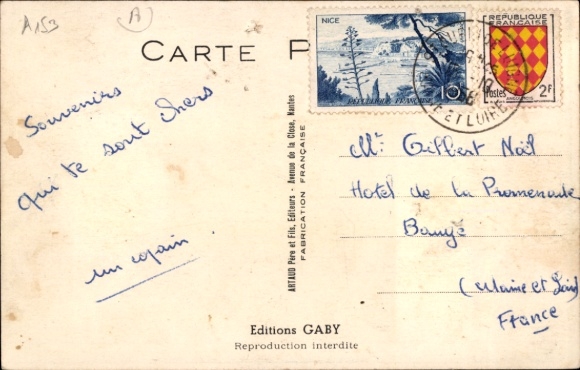 A153
A
CARTE P
NICE
10F
REPUBLIQUE FRANÇAISE
REPUBLIQUE
FRANÇAISE
Postes 2F
ET LOIRE
Souvenirs
qui te sont chers
un copain
ARTAUD Père et Fils, Editeurs - Avenue de la Close, Nantes
FABRICATION FRANÇAISE
Mr. Gilbert Noël
Hotel de la Promenade
Baugé
(Maine et Loire)
France
Editions GABY
Reproduction interdite